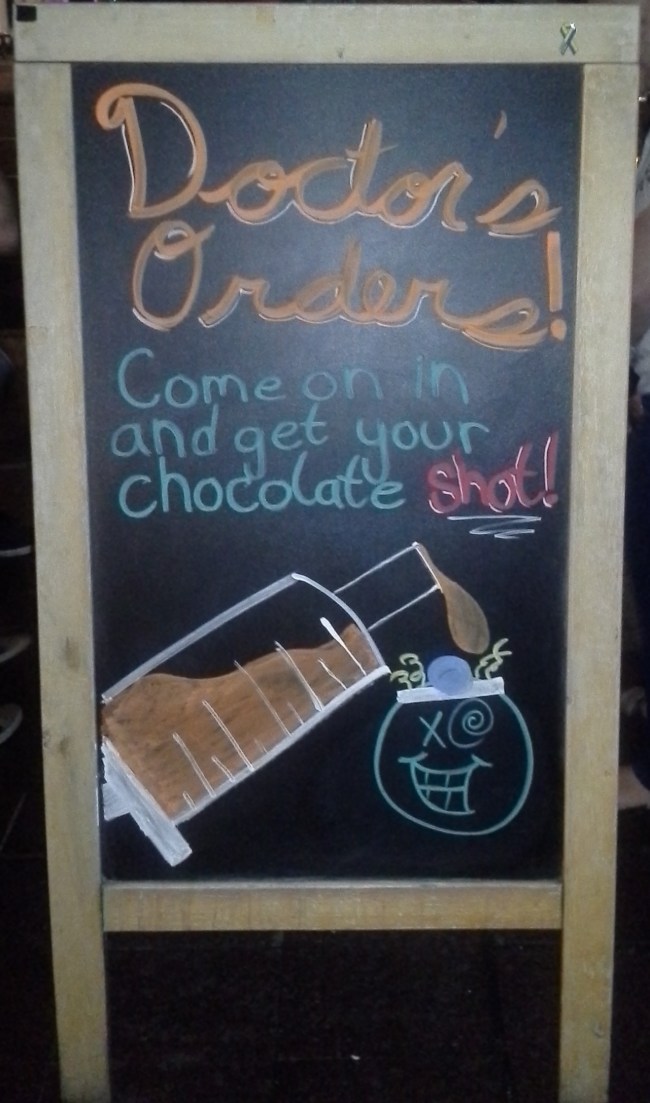 Doctor's
Orders!
Come on in
and get your
chocolate shot!